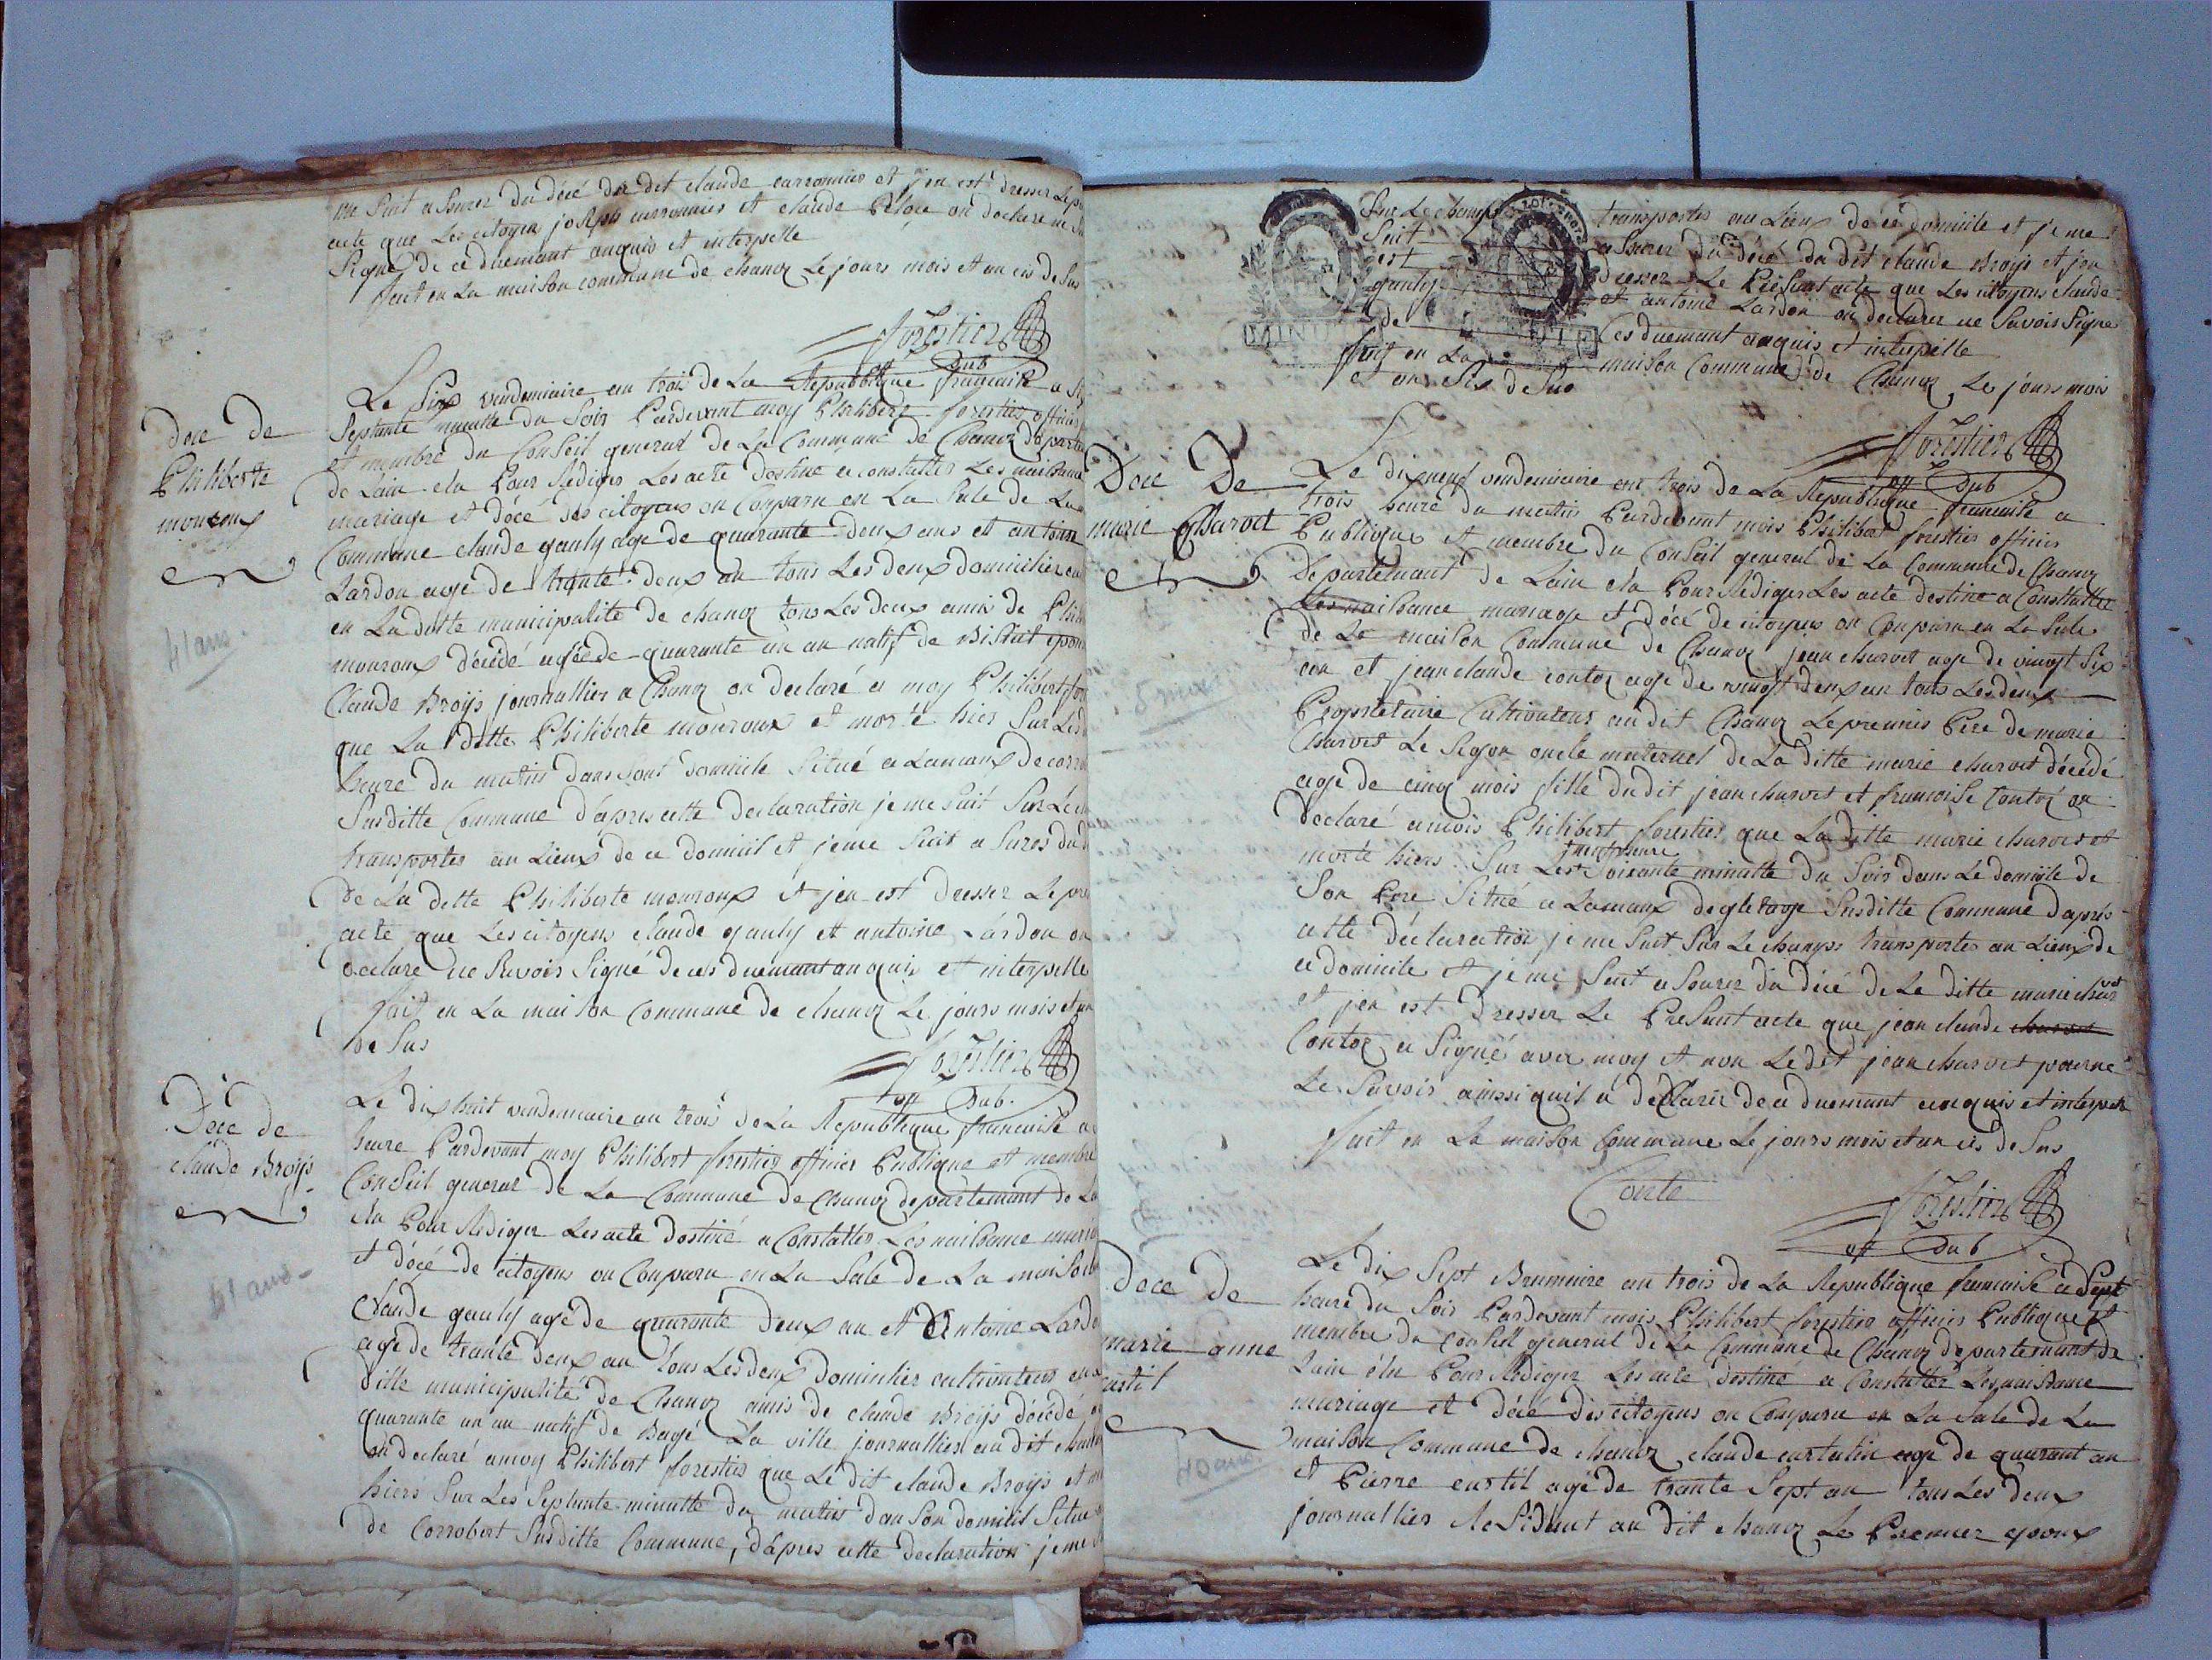 me suit a surer du décé du dit claude carronnier et j'en est dresser le
acte que les citoyen joseph carronnier et claude on declare ne
signé de ce duemant anquis et interpelle
fait en la maison commune de chanoz le jours mois et an es de sus
forestier
off pub
Dece de
Philiberte
mouroux
41 ans
Le vendemiaire an trois de la Republique francaise a
septante minutte du soir Pardevant moy Philibert forestier officier
et membre du Conseil general de la Commune de Chanoz departe
de Lain elu Pour Rediger Les acte destine a constatter Les naissance
mariage et décé des citoyens on Conparu en La sale de La
Commune claude gauly age de quarante deux ans et antoine
Lardon age de trante deux an tous Les deux domicilier
en La ditte municipalité de chanoz tous Les deux amis de
mouroux décédé agée de quarante un an natif de epoux
Claude Broys journallier a Chanoz on declaré a moy Philibert
que La ditte Philiberte mouroux et morte hier sur Les
heure du matin dans sont domicile situé a Lamaux de
susditte Commune d'apres cette declaration je me suit sur Le
transporter au Lieux de ce domicil et je me suit a surer du
de La ditte Philiberte mouroux et j'en est dresser Le
acte que Les citoyens claude gauly et antoine Lardon on
declare ne savoir signé de ces duemant anquis et interpelle
fait en La maison Commune de chanoz Le jours mois et an
de sus
forestier
off pub.
Dece de
claude Broys
41 ans
Le dix huit vendemiaire an trois de La Republique francaise a
heure Pardevant moy Philibert forestier officier Publique et membre
Conseil general de La Commune de Chanoz departemant de
elu Pour Rediger Les acte destiné a Constatter Les naissance
et décé de citoyens on Conparu en La sale de La maison
Claude gauly age de quarante deux an et Antoine
age de trante deux an tous Les deux domicilier cultivateur en
ditte municipalité de Chanoz amis de claude Broys décédé
quarante un an natif de Bagé La ville journallier au dit
on declaré a moy Philibert forestier que Le dit claude Broys et
hiers sur Les septante minutte du matin dan son domicil situe
de Corrobert susditte Commune, d'apres cette declaration je me
sur Le champ transporter au Lieux de ce domicile et je me
suit a surer du décé du dit claude Broys et j'en
est dresser Le Présant acte que Les citoyens claude
gauly et antoine Lardon on declarer ne savoir signe
de ces duemant anquis et interpelle
fait en La maison Commune de Chanoz Le jours mois
et ans es de sus
forestier
off pub
Dece De
marie Charvet
5 mois
Le dix neuf vendemiaire an trois de La Republique francaise a
trois heure du matin Pardevant mois Philibert forestier officier
Publique et membre du Conseil general de La Commune de Chanoz
Departemant de Lain elu Pour Rediger Les acte destine a Constatter
Les naissance mariage et décé de citoyens on Conparu en La sale
de La maison Commune de Chanoz jean charvet age de vingt six
an et jean claude contoz age de vingt deux an tous Les deux
Proprietaire Cultivateur au dit Chanoz Le premier Pere de marie
Charvet Le segon oncle maternel de La ditte marie charvet décédé
age de cinq mois fille du dit jean charvet et francoise Contoz on
declaré a mois Philibert forestier que La ditte marie charvet et
morte hiers sur Les neuf heure soixante minutte du soir dans Le domicile de
son Pere situé a Lamaux de susditte Commune d'apres
cette déclaration je me suit sur Le champs transporter au Lieux de
ce domicile et je me suit a surer du décé de La ditte marie charvet
et j'en est dresser Le Présant acte que jean claude charvet
Contoz a signé avec moy et non Le dit jean charvet pour ne
Le savoir ainssi quil a déclarer de ce duemant anquis et interpelle
fait en La maison Commune Le jours mois et an es de sus
Conte
forestier
off pub
Dece de
marie anne
curtil
40 ans
Le dix sept Brumaire an trois de La Republique francaise a sept
heure du soir Pardevant mois Philibert forestier officier Publique et
membre du Conseil general de La Commune de Chanoz departemant de
Lain élu Pour Rediger Les acte destiné a Constatter Les naissance
mariage et décé des citoyens on Conparu en La sale de La
maison Commune de chanoz claude age de quarant an
et Pierre curtil agé de trante sept an tous Les deux
journallier Residant au dit chanoz Le Premier epoux